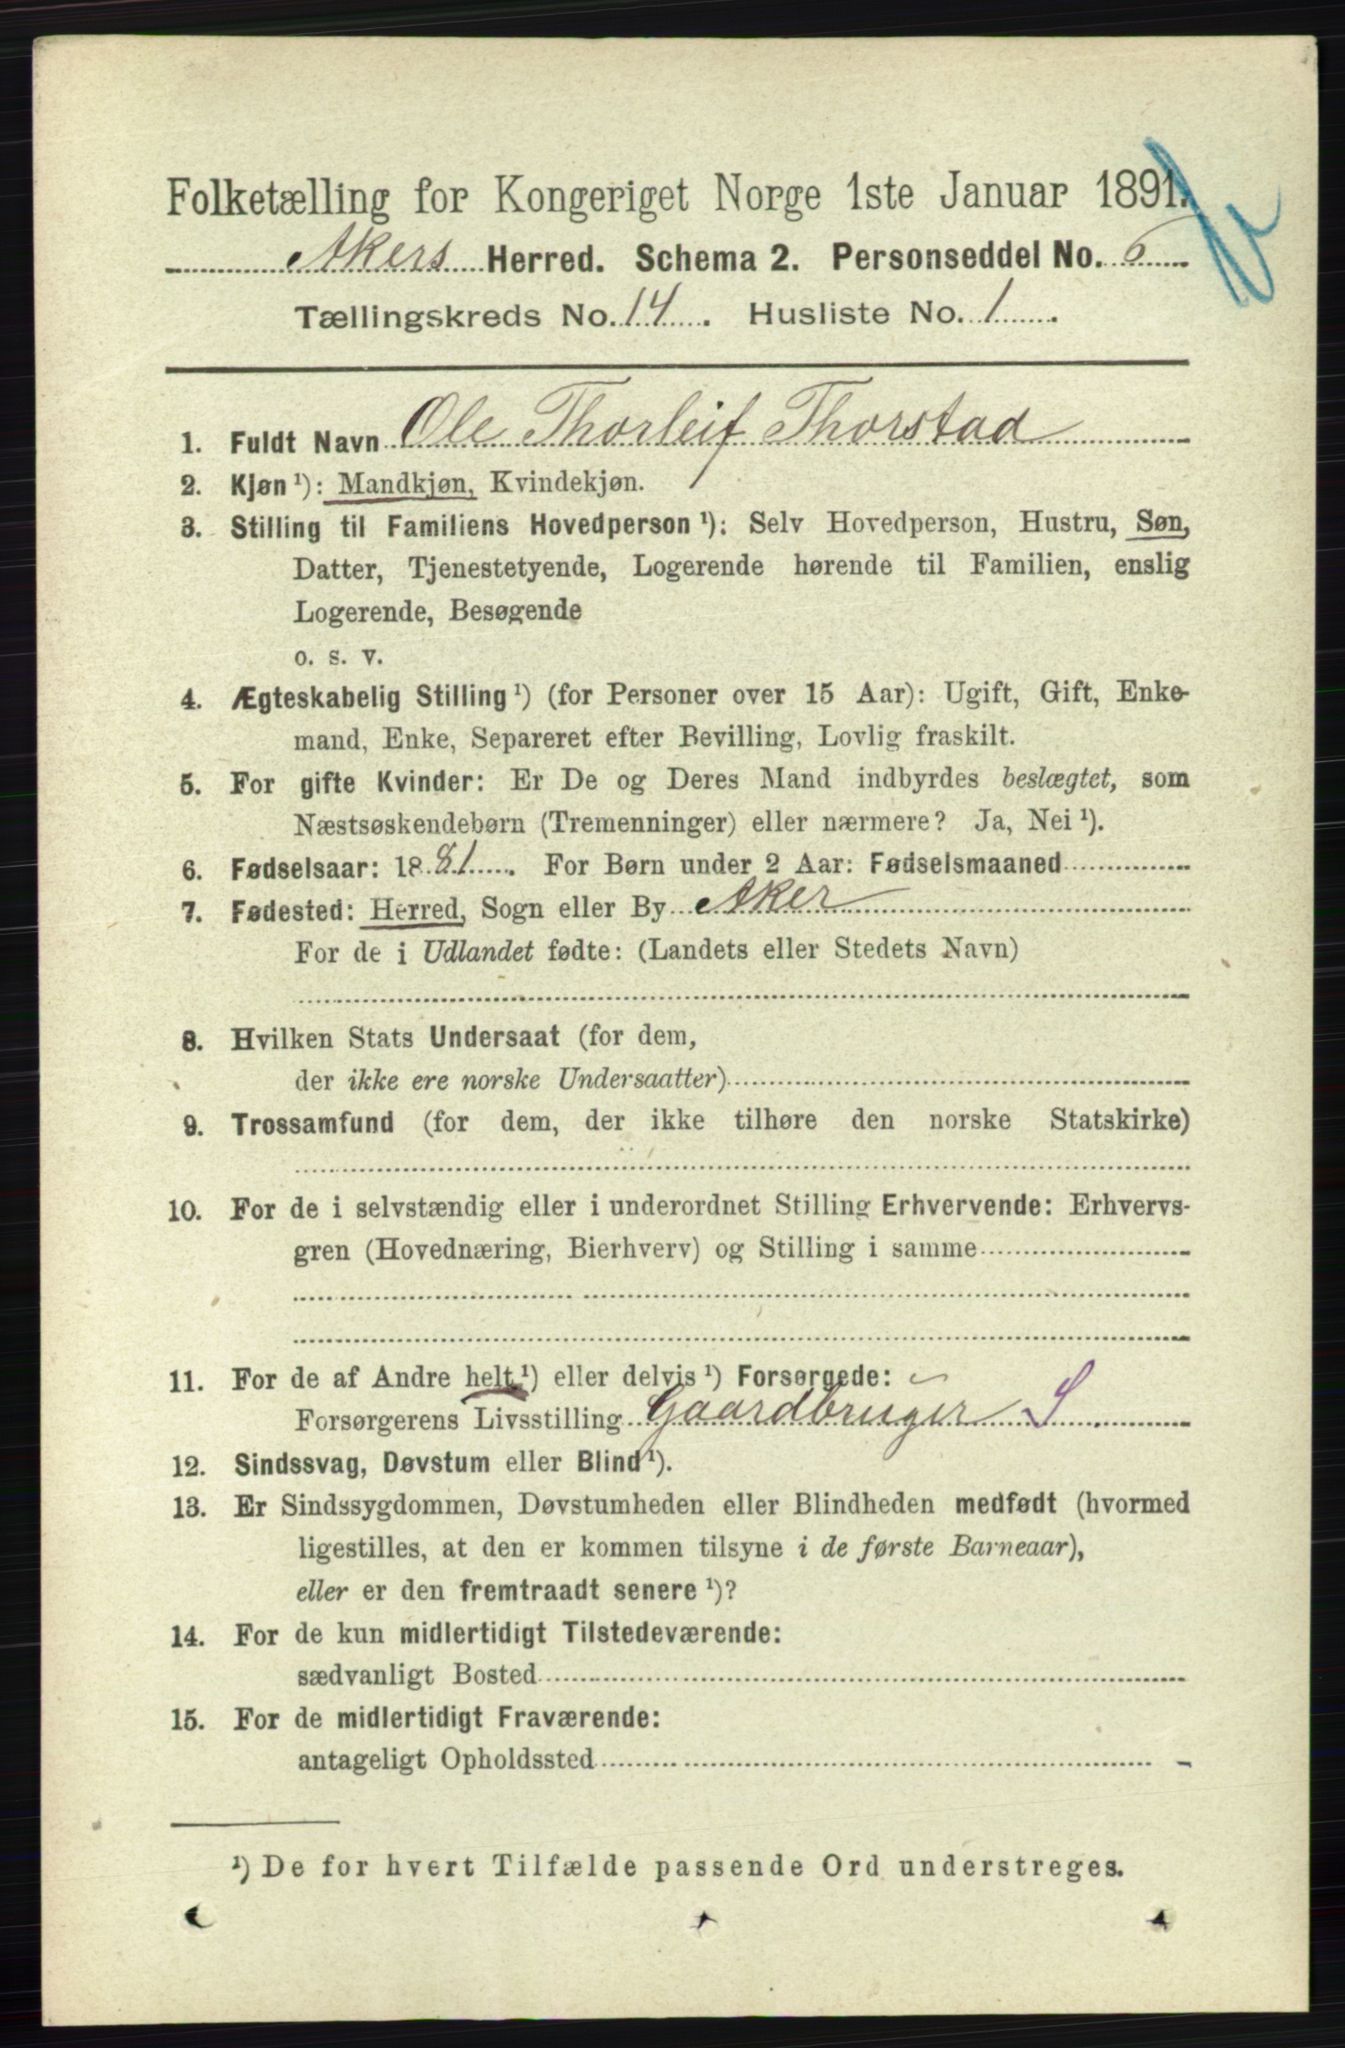 Folketælling for Kongeriget Norge 1ste Januar 1891.
Akers Herred. Schema 2. Personseddel No. 6
Tællingskreds No. 14. Husliste No. 1
1. Fuldt Navn Ole Thorleif Thorstad
2. Kjøn ¹): Mandkjøn, Kvindekjøn.
3. Stilling til Familiens Hovedperson ¹): Selv Hovedperson, Hustru, Søn,
Datter, Tjenestetyende, Logerende hørende til Familien, enslig
Logerende, Besøgende
o. s. v.
4. Ægteskabelig Stilling ¹) (for Personer over 15 Aar): Ugift, Gift, Enke-
mand, Enke, Separeret efter Bevilling, Lovlig fraskilt.
5. For gifte Kvinder: Er De og Deres Mand indbyrdes beslægtet, som
Næstsøskendebørn (Tremenninger) eller nærmere? Ja, Nei ¹).
6. Fødselsaar: 1881. For Børn under 2 Aar: Fødselsmaaned
7. Fødested: Herred, Sogn eller By Aker
For de i Udlandet fødte: (Landets eller Stedets Navn)
8. Hvilken Stats Undersaat (for dem,
der ikke ere norske Undersaatter)
9. Trossamfund (for dem, der ikke tilhøre den norske Statskirke)
10. For de i selvstændig eller i underordnet Stilling Erhvervende: Erhvervs-
gren (Hovednæring, Bierhverv) og Stilling i samme
11. For de af Andre helt ¹) eller delvis ¹) Forsørgede:
Forsørgerens Livsstilling Gaardbruger S
12. Sindssvag, Døvstum eller Blind ¹).
13. Er Sindssygdommen, Døvstumheden eller Blindheden medfødt (hvormed
ligestilles, at den er kommen tilsyne i de første Barneaar),
eller er den fremtraadt senere ¹)?
14. For de kun midlertidigt Tilstedeværende:
sædvanligt Bosted
15. For de midlertidigt Fraværende:
antageligt Opholdssted
¹) De for hvert Tilfælde passende Ord understreges.